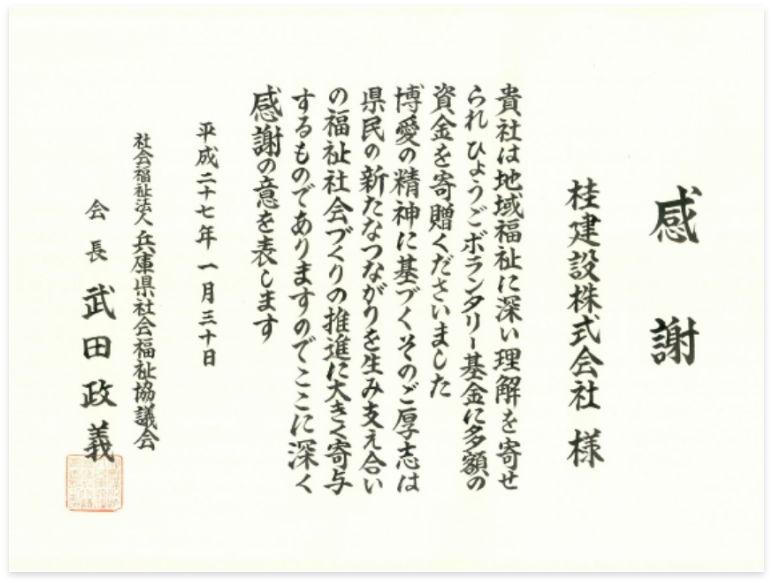 感謝
桂建設株式会社 様
貴社は地域福祉に深い理解を寄せ
られ ひょうごボランタリー基金に多額の
資金を寄贈くださいました
博愛の精神に基づくそのご厚志は
県民の新たなつながりを生み支え合い
の福祉社会づくりの推進に大きく寄与
するものでありますのでここに深く
感謝の意を表します
平成二十七年一月三十日
社会福祉法人 兵庫県社会福祉協議会
会長 武田政義